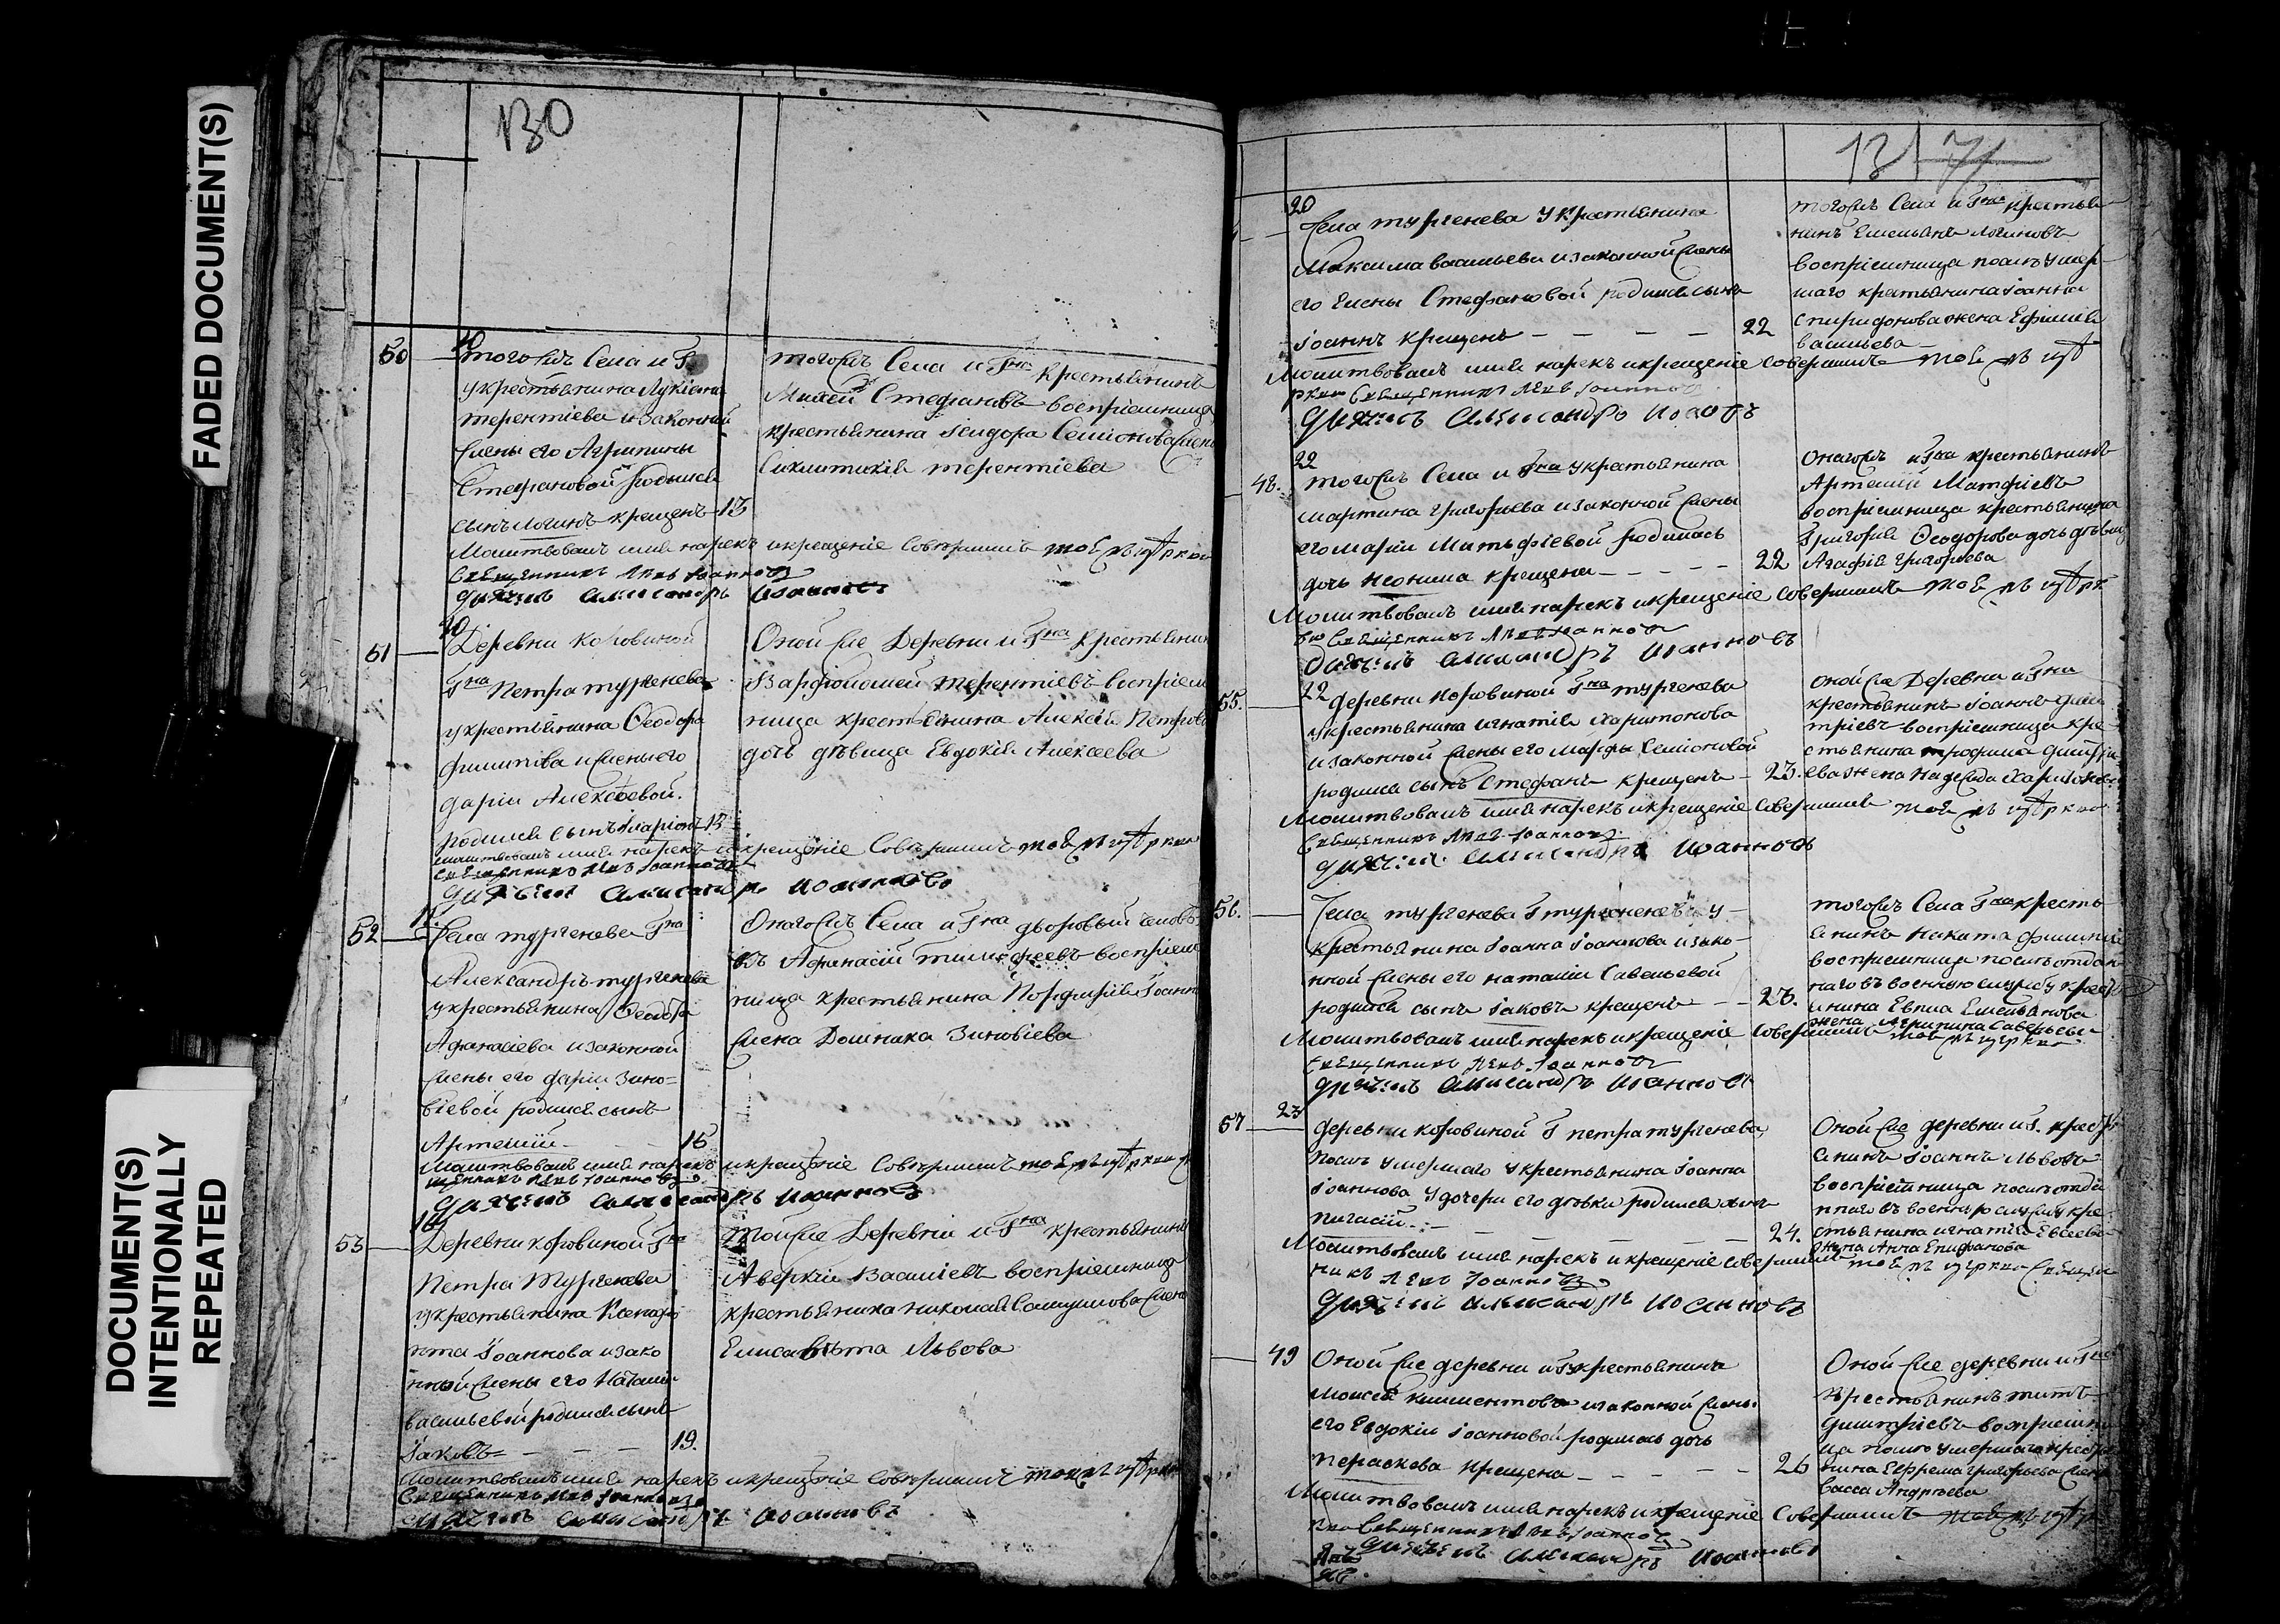 FADED DOCUMENT(S)
DOCUMENT(S)
INTENTIONALLY
REPEATED
130
50
тогожъ Села и Г
укрестьянина Лукіана
терентіева изаконной
жены его Агрипины
Стефановой родился
сынъ логинъ крещенъ 13
тогожъ Села и Гна крестьянинъ
Михей Стефановъ воспріемница
крестьянина Исидора Семіонова жена
терентіева
Молитвовалъ имя нарекъ и крещеніе Совершилъ
Священникъ Левъ Іоанновъ
дьячекъ Александръ Іоанновъ
51
10
Деревни Коровиной
Гна Петра тургенева
укрестьянина Феодора
филипова и жены его
даріи Алексѣевой.
родился сынъ Іларіонъ 13
Оной же Деревни и Гна Крестьянин
Варфоломей терентіевъ воспріем
ница крестьянина Алексѣя Петрова
дочь дѣвица Евдокія Алексеева
имя нарекъ и крещеніе Совершилъ
Священникъ Левъ Іоанновъ
дьячекъ Александръ Іоанновъ
52
Села тургенева Гна
Александръ тургенева
укрестьянина Феодора
Афанасіева изаконной
жены его даріи Зино=
віевой родился сынъ
Артемій 15
Онагожъ Села и Гна дворовый челов
къ Афанасій тимофеевъ воспріем
ница крестьянина Порфирія Іоанн
жена Домника Зиновіева
Молитвовалъ имя нарекъ и крещеніе Совершилъ
Левъ Іоанновъ
дьячекъ Александръ Іоанновъ
53
16
Деревни коровиной Гна
Петра Тургенева
укрестьянина Ксеноф
нта Іоаннова изако
нной жены его Наталіи
васильевой родился сынъ
Іаковъ 19.
Той же Деревни и Гна крестьянинъ
Аверкій Василіевъ воспріемница
крестьянина николая Самуилова жена
Елисавѣта Львова
Молитвовалъ имя нарекъ и крещеніе Совершилъ
Священникъ Левъ Іоанновъ
дьячекъ Александръ Іоанновъ
131 71
20
Села тургенева Укрестьянина
Максима васильева изаконной жены
его Елены Стефановой родился сынъ
Іоаннъ крещенъ 22
тогожъ Села и Гна крестья
нинъ Емельянъ логиновъ
воспріемница послѣ умер
шаго крестьянина Іоанна
Спиридонова жена Ефимія
васильева
Молитвовалъ имя нарекъ и крещеніе Совершилъ
Священникъ Левъ Іоанновъ
дьячекъ Александръ Іоановъ
48.
22
тогожъ Села и Гна укрестьянина
мартина григорьева изаконной жены
его маріи Матьфіевой родилась
дочь неонила крещена 22
Онагожъ и Гна крестьянинъ
Артемій Матфіевъ
воспріемница крестьянина
Григорія Феодорова дочь дѣвица
Агафія григорьева
Молитвовалъ имя нарекъ и крещеніе Совершилъ
Священникъ Левъ Іоанновъ
дьячекъ Александръ Іоанновъ
55.
22
деревни Коровиной Гна тургенева
укрестьянина игнатія Харитонова
изаконной жены его марфы Семіоновой
родился сынъ Стефанъ крещенъ 23.
Оной же Деревни и Гна
крестьянинъ Іоаннъ дми
тріевъ воспріемница кре
стьянина трофима дмитри
ева жена Надежда Харитонова
Молитвовалъ имя нарекъ и крещеніе Совершилъ
Священникъ Левъ Іоанновъ
дьячекъ Александръ Іоанновъ
56.
Села тургенева Г тургенева у
крестьянина Іоанна Іоаннова изако
нной жены его наталіи Савельевой
родился сынъ Іаковъ крещенъ 23.
тогожъ Села Гна кресть
янинъ Никита филипп
воспріемница послѣ отдан
наго въ военную службу крест
янина Емельянова
жена Агрипина Савельева
Молитвовалъ имя нарекъ и крещеніе Совершилъ
Священникъ Левъ Іоанновъ
дьячекъ Александръ Іоанновъ
57
23
деревни коровиной Г петра тургенева,
послѣ умершаго укрестьянина Іоанна
Іоаннова у дочери его дѣвки родился сынъ
24.
Оной же деревни и Г. крест
янинъ Іоаннъ Львовъ
воспріемница послѣ отда
ннаго въ военную службу кре
стьянина игнатія Евсеева
жена Анна Епифанова
Молитвовалъ имя нарекъ и крещеніе Совершилъ
никъ Левъ Іоанновъ
дьячекъ Александръ Іоанновъ
49
Оной же деревни и Г укрестьянина
Моисея климентова изаконной жены
его Евдокіи Іоанновой родилась дочь
Параскева крещена 26
Оной же деревни и Гна
Крестьянинъ титъ
дмитріевъ воспріемни
ца послѣ умершаго крестья
нина Ефрема григорьева жена
васса Андрѣева
Молитвовалъ имя нарекъ и крещеніе Совершилъ
Священникъ Левъ Іоанновъ
дьячекъ Александръ Іоанновъ